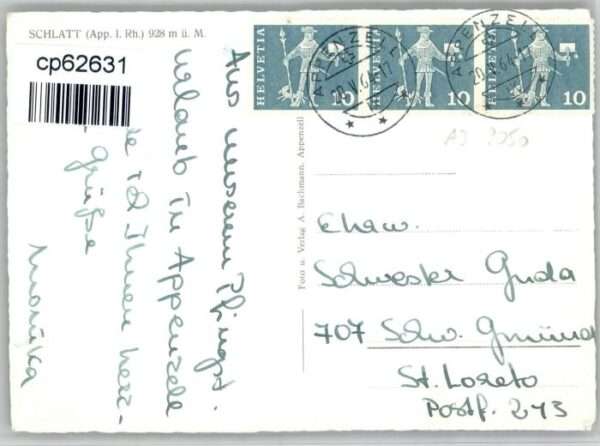 SCHLATT (App. I. Rh.) 928 m ü. M.
cp62631
HELVETIA 10
HELVETIA 10
HELVETIA 10
APPENZELL
APPENZELL
Aus unserem Pfingst-
urlaub in Appenzell
Ihnen herz-
Grüße
Monika
Foto u. Verlag A. Bachmann, Appenzell
Ehrw.
Schwester Guda
707 Schw. Gmünd
St. Loreto
Postf. 243